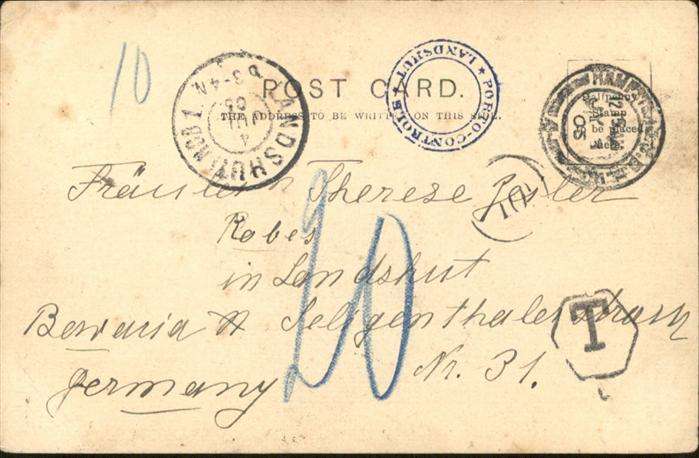 10
POST CARD.
THE ADDRESS TO BE WRITTEN ON THIS SIDE.
LANDSHUT (NDB) 1.
4
05
3-4N
PORTO-CONTROLE * LANDSHUT *
05
be placed
Fräulein Therese
Robes
in Landshut
Bavaria Seligenthalerstrasse
Germany Nr. 31.
20
T